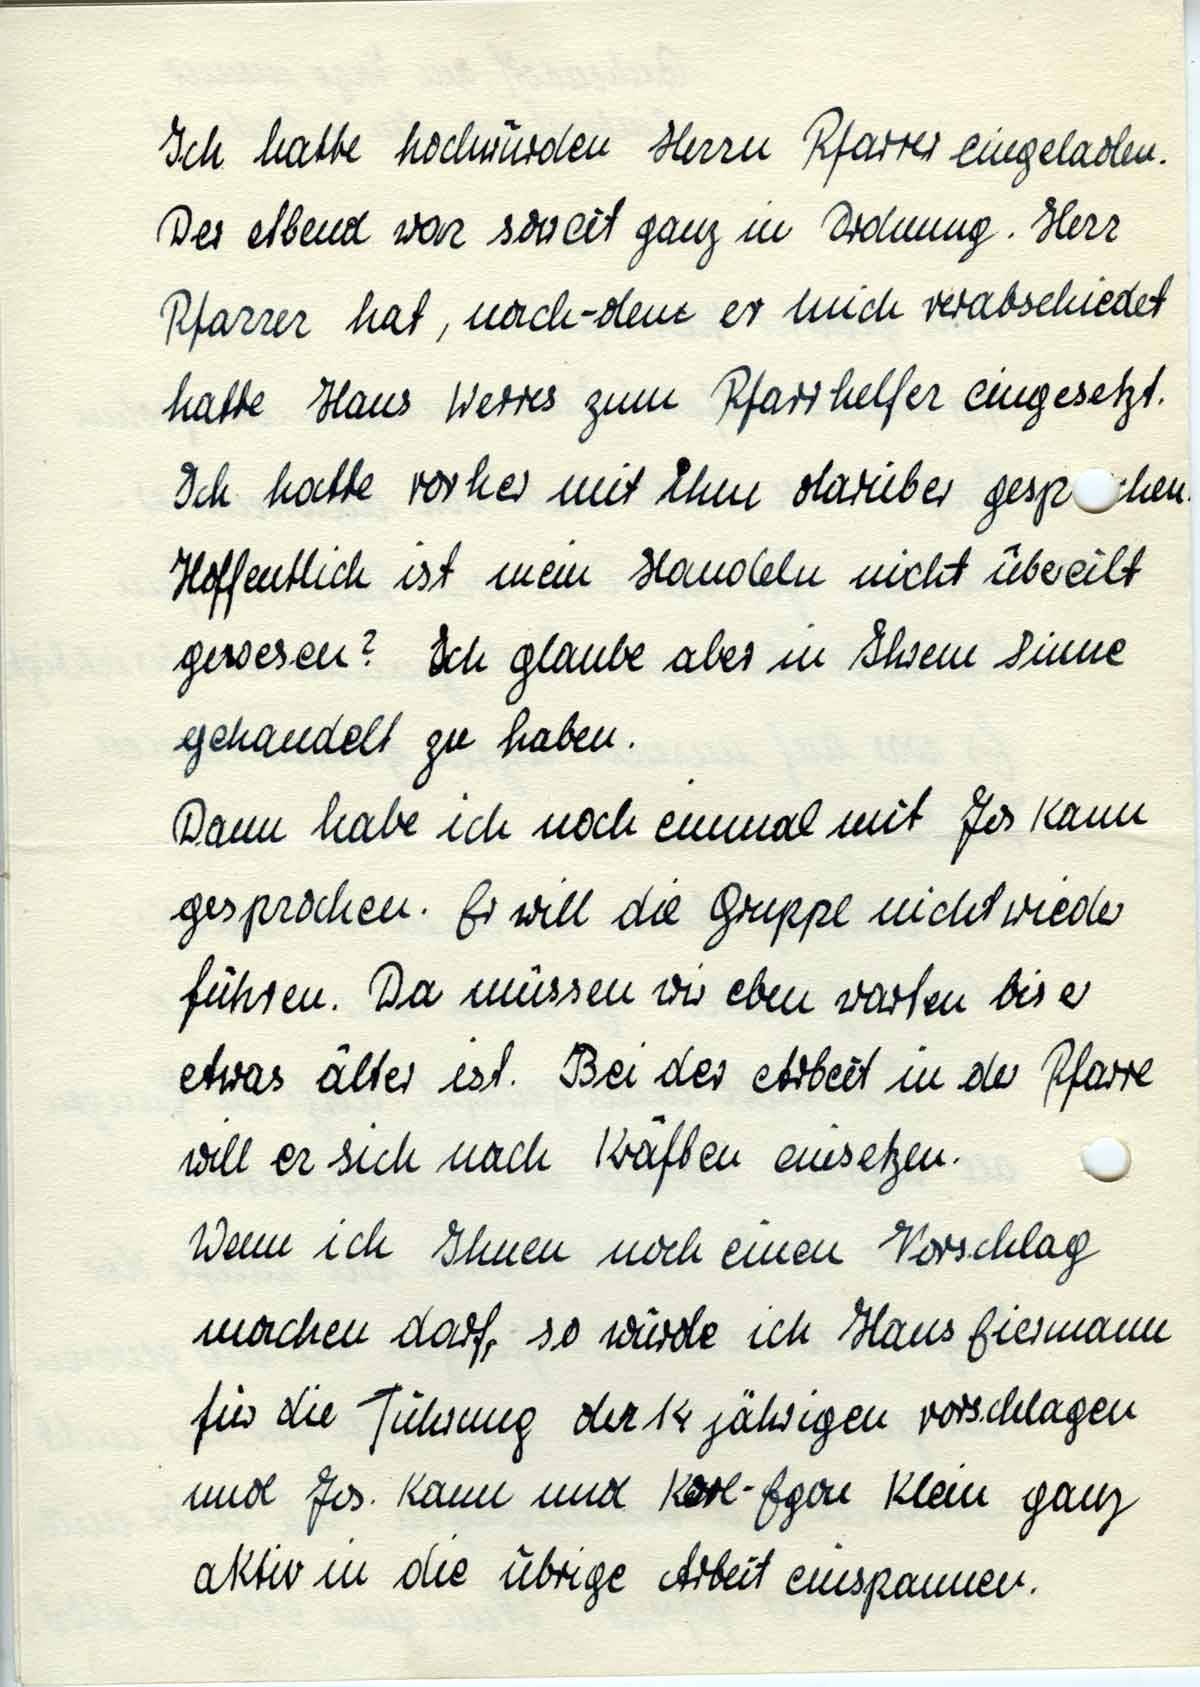 Ich hatte hochwürden Herrn Pfarrer eingeladen.
Der Abend war soweit ganz in Ordnung. Herr
Pfarrer hat, nach-dem er mich verabschiedet
hatte Hans Werres zum Pfarrhelfer eingesetzt.
Ich hatte vorher mit Ihm darüber gesprochen.
Hoffentlich ist mein Handeln nicht übereilt
gewesen? Ich glaube aber in Ihrem Sinne
gehandelt zu haben.
Dann habe ich noch einmal mit Jos Kann
gesprochen. Er will die Gruppe nicht wieder
führen. Da müssen wir eben warten bis er
etwas älter ist. Bei der Arbeit in der Pfarre
will er sich nach Kräften einsetzen.
Wenn ich Ihnen noch einen Vorschlag
machen darf, so würde ich Hans Eiermann
für die Führung der 14 jährigen vorschlagen
und Jos. Kann und Karl-Egon Klein ganz
aktiv in die übrige Arbeit einspannen.